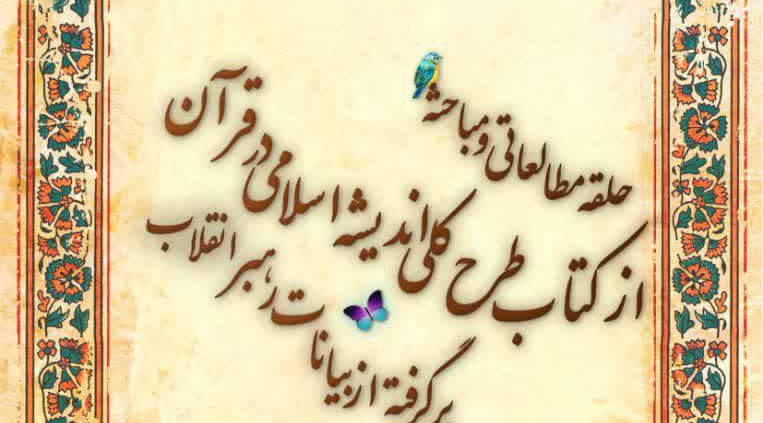 حلقه مطالعاتی و مباحثه
از کتاب طرح کلی اندیشه اسلامی در قرآن
برگرفته از بیانات رهبر انقلاب